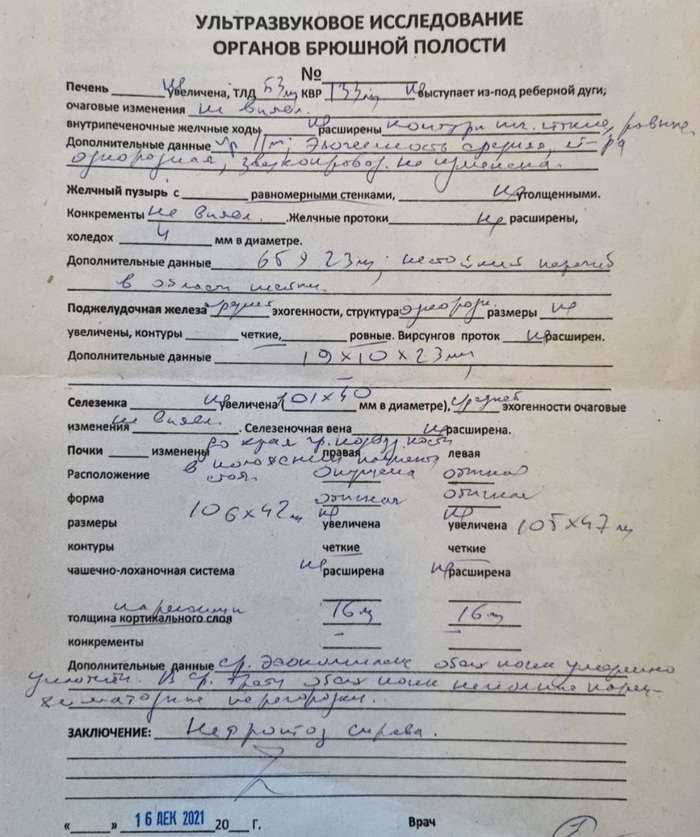 УЛЬТРАЗВУКОВОЕ ИССЛЕДОВАНИЕ
ОРГАНОВ БРЮШНОЙ ПОЛОСТИ
№
Печень не увеличена, ТЛД 53мм КВР 133мм не выступает из-под реберной дуги;
очаговые изменения не выявл.
внутрипеченочные желчные ходы не расширены контуры четкие, ровные,
Дополнительные данные эхогенность средняя,
однородная, звукопровод. не изменена.
Желчный пузырь с равномерными стенками, не утолщенными.
Конкременты не выявл. .Желчные протоки не расширены,
холедох 4 мм в диаметре.
Дополнительные данные 65 х 23мм; перегиб
в области шейки
Поджелудочная железа средней эхогенности, структура однород. размеры не
увеличены, контуры четкие, ровные. Вирсунгов проток не расширен.
Дополнительные данные 19х10х23мм
Селезенка не увеличена (101х40 мм в диаметре), средней эхогенности очаговые
изменения не выявл. . Селезеночная вена не расширена.
Почки изменены правая левая
Расположение стоя. опущена обычное
форма обычная обычная
размеры 106х42мм не увеличена не увеличена 105х47мм
контуры четкие четкие
чашечно-лоханочная система не расширена не расширена
паренхимы
толщина кортикального слоя 16мм 16мм
конкременты – –
Дополнительные данные обеих почек умеренно
В ср. трети обеих почек неполные парен-
химатозные перегородки.
ЗАКЛЮЧЕНИЕ: Нефроптоз справа.
«____» 16 ДЕК 2021 20__ г. Врач